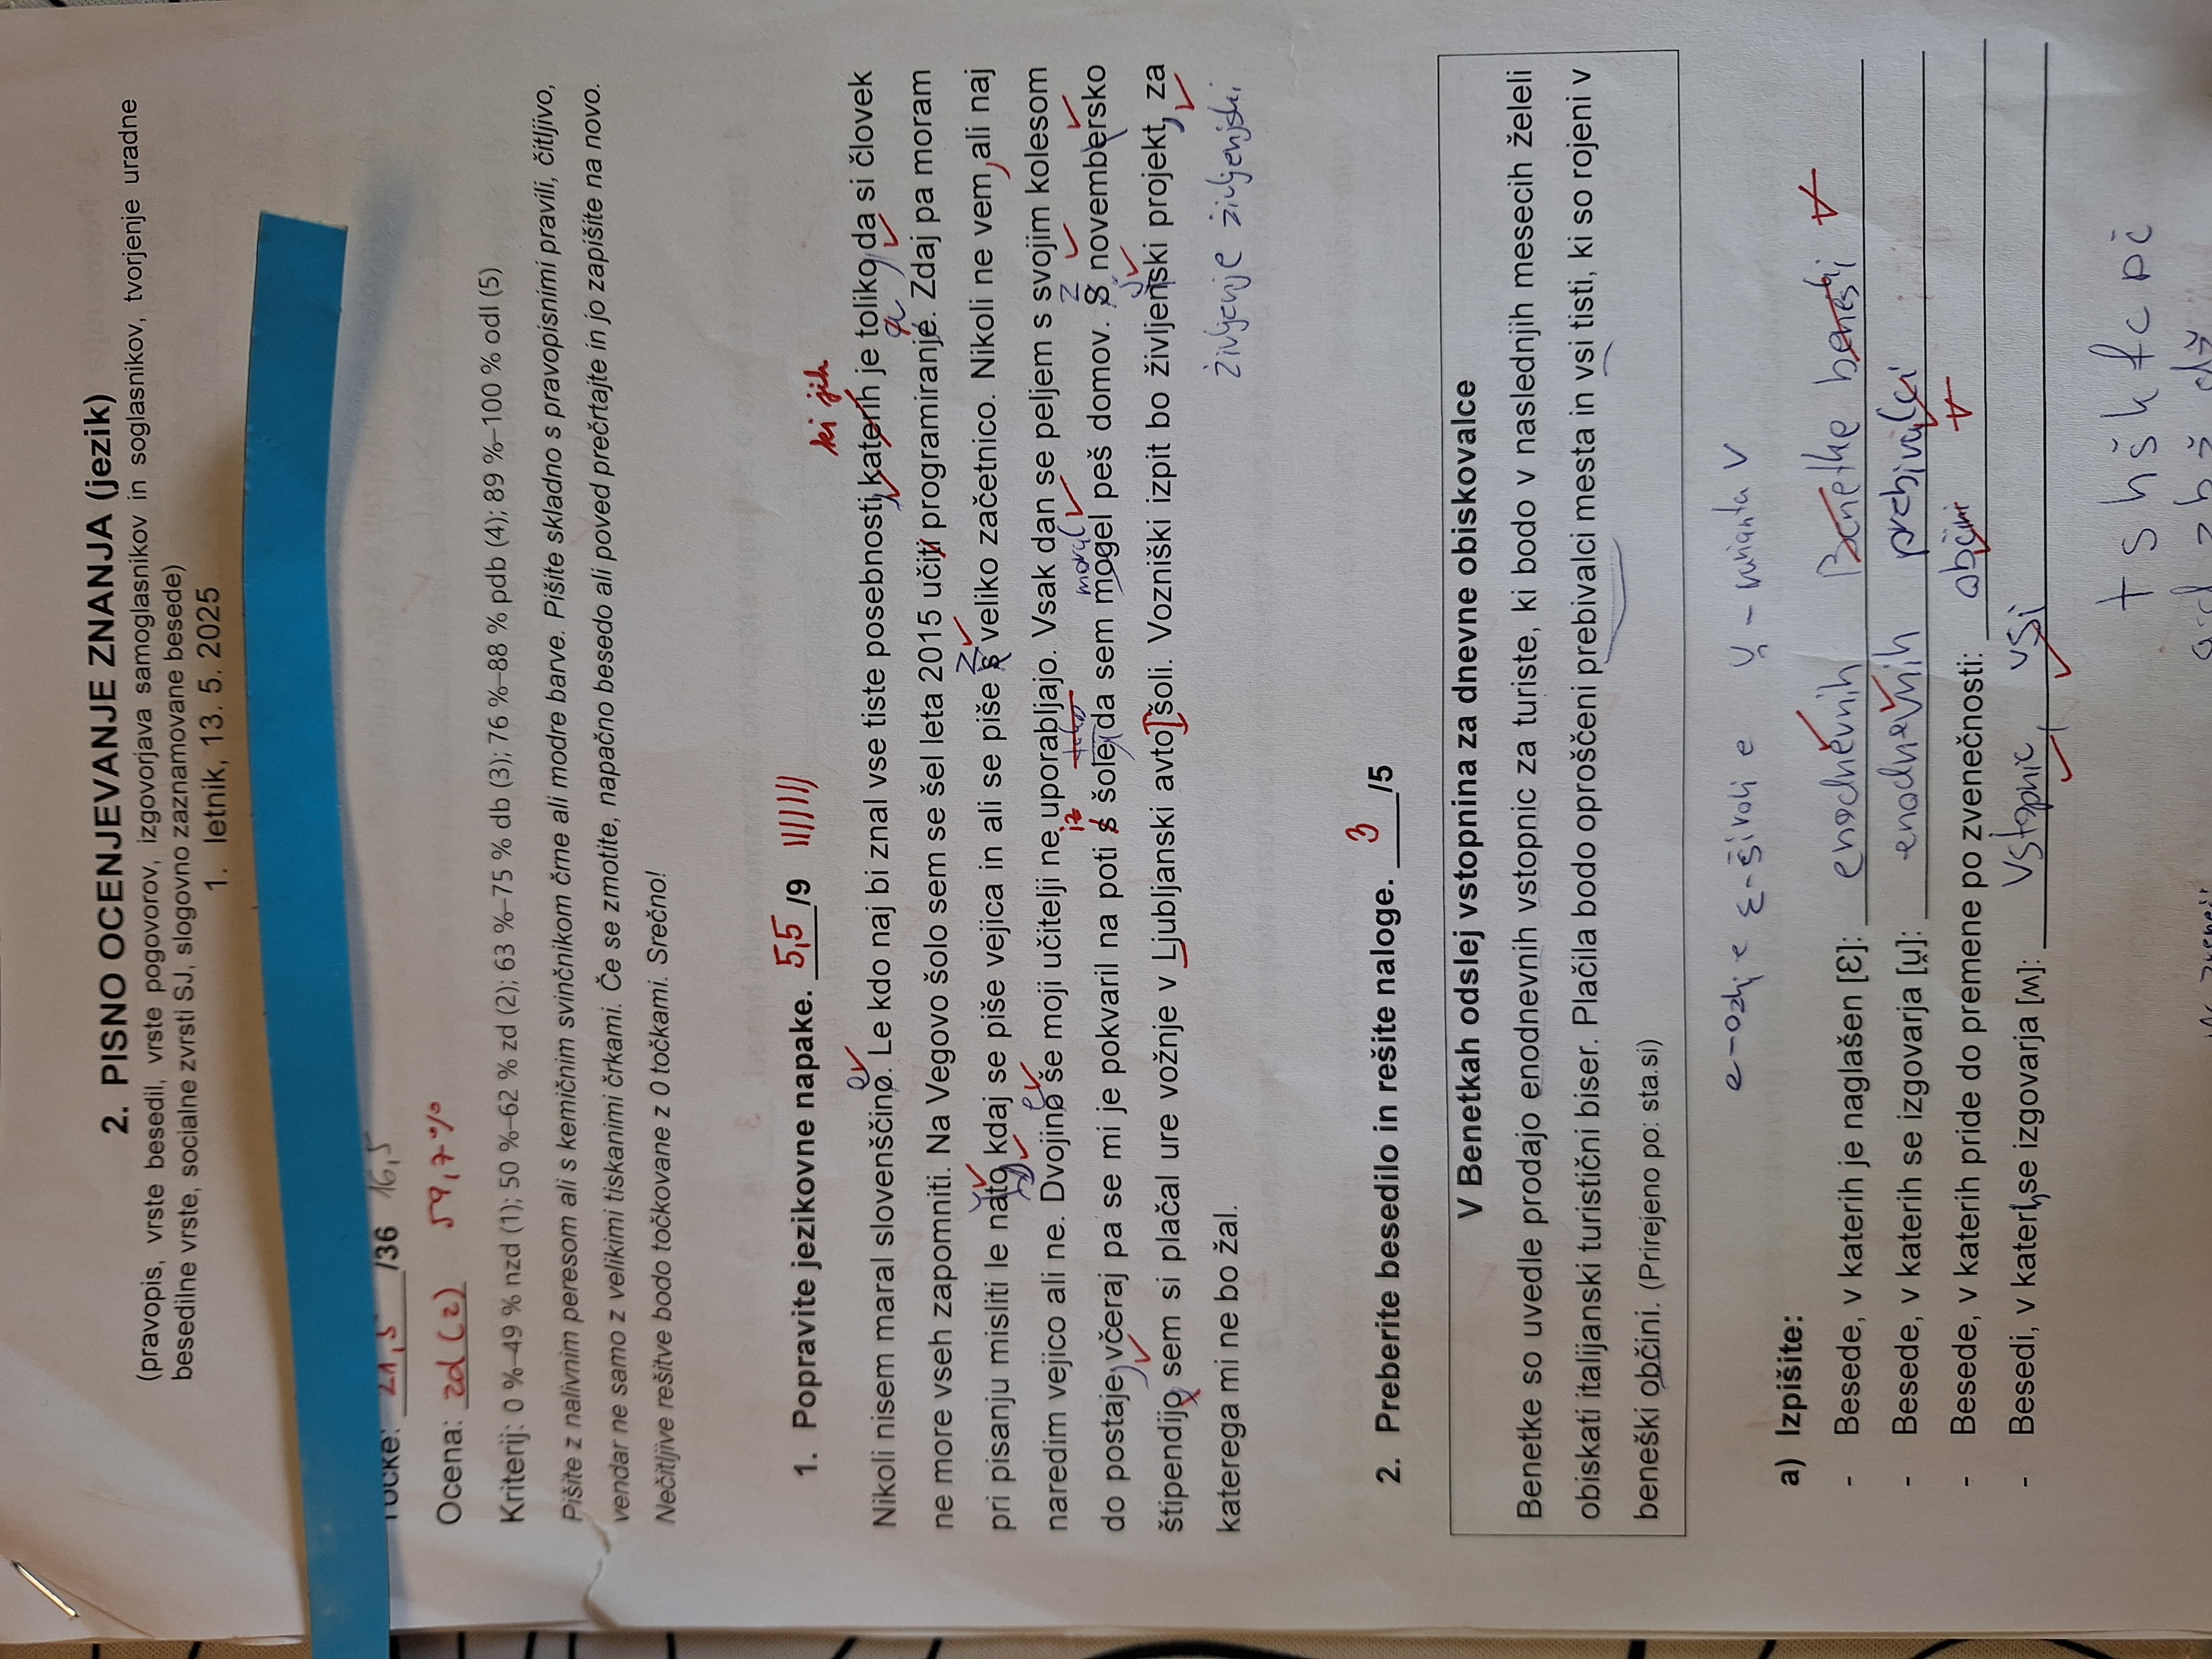 2. PISNO OCENJEVANJE ZNANJA (jezik)
(pravopis, vrste besedil, vrste pogovorov, izgovorjava samoglasnikov in soglasnikov, tvorjenje uradne
besedilne vrste, socialne zvrsti SJ, slogovno zaznamovane besede)
1. letnik, 13. 5. 2025
Točke: 21,5 /36 16,5
Ocena: zd (2) 59,7%
Kriterij: 0 %–49 % nzd (1); 50 %–62 % zd (2); 63 %–75 % db (3); 76 %–88 % pdb (4); 89 %–100 % odl (5)
Pišite z nalivnim peresom ali s kemičnim svinčnikom črne ali modre barve. Pišite skladno s pravopisnimi pravili, čitljivo,
vendar ne samo z velikimi tiskanimi črkami. Če se zmotite, napačno besedo ali poved prečrtajte in jo zapišite na novo.
Nečitljive rešitve bodo točkovane z 0 točkami. Srečno!
1. Popravite jezikovne napake. 5,5 /9
ki jih
e
Nikoli nisem maral slovenščino. Le kdo naj bi znal vse tiste posebnosti, katerih je toliko, da si človek
a
ne more vseh zapomniti. Na Vegovo šolo sem se šel leta 2015 učiti programiranje. Zdaj pa moram
z
pri pisanju misliti le na to, kdaj se piše vejica in ali se piše s veliko začetnico. Nikoli ne vem, ali naj
e
naredim vejico ali ne. Dvojino še moji učitelji ne uporabljajo. Vsak dan se peljem s svojim kolesom
iz tako moral Z
do postaje, včeraj pa se mi je pokvaril na poti s šole, da sem mogel peš domov. S novembersko
j
štipendijo sem si plačal ure vožnje v Ljubljanski avto šoli. Vozniški izpit bo življenski projekt, za
katerega mi ne bo žal.
življenje življenjski
2. Preberite besedilo in rešite naloge. 3 /5
V Benetkah odslej vstopnina za dnevne obiskovalce
Benetke so uvedle prodajo enodnevnih vstopnic za turiste, ki bodo v naslednjih mesecih želeli
obiskati italijanski turistični biser. Plačila bodo oproščeni prebivalci mesta in vsi tisti, ki so rojeni v
beneški občini. (Prirejeno po: sta.si)
e-ozki e ε-široki e u̯ - varianta V
a) Izpišite:
- Besede, v katerih je naglašen [Ɛ]: enodnevnih Benetke beneški
- Besede, v katerih se izgovarja [u̯]: enodnevnih prebivalci
- Besede, v katerih pride do premene po zvenečnosti: občini
- Besedi, v katerih se izgovarja [ʍ]: vstopnic, vsi
t s h š k f c p č